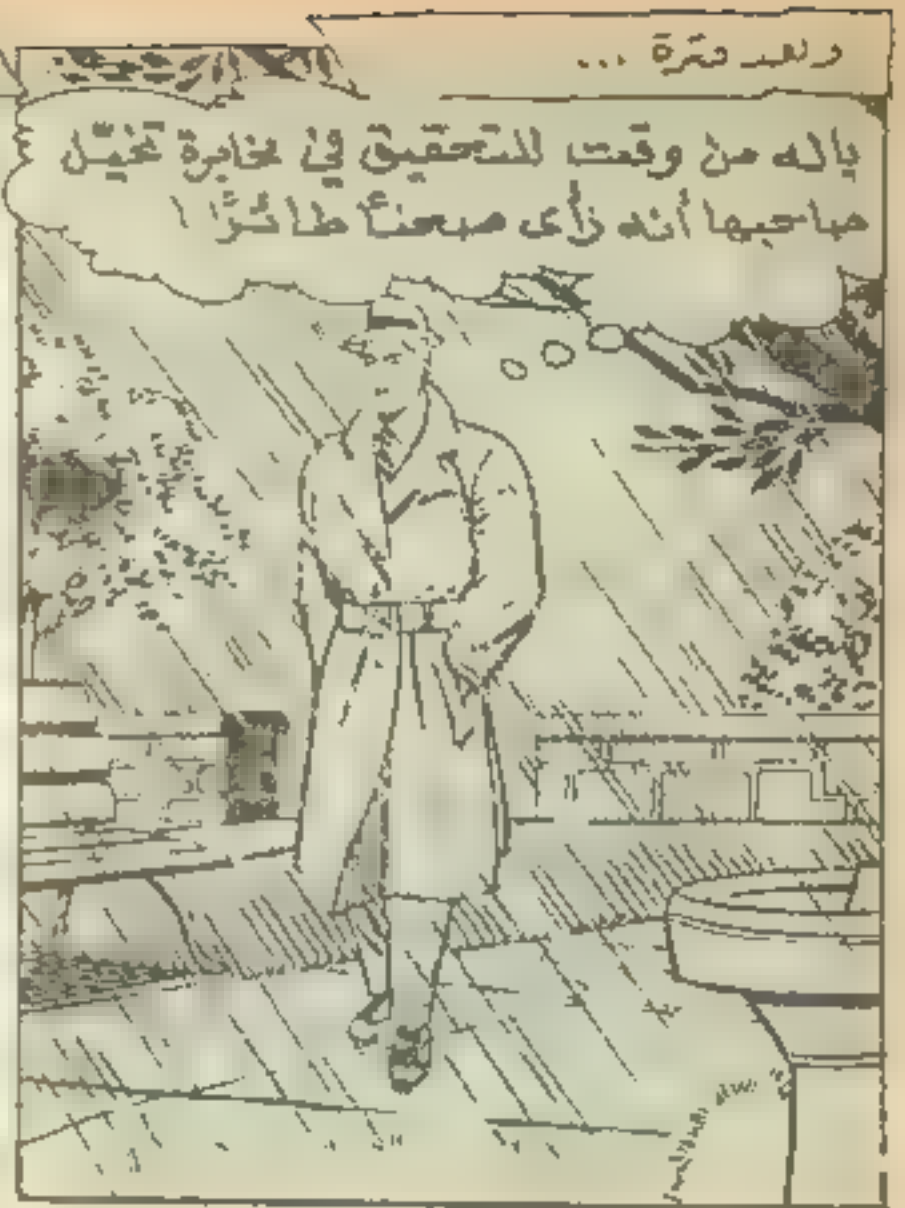 وبعد فترة ...
ياله من وقت للتحقيق في مخابرة تخيّل
صاحبها أنه رأى صحنًا طائرًا !